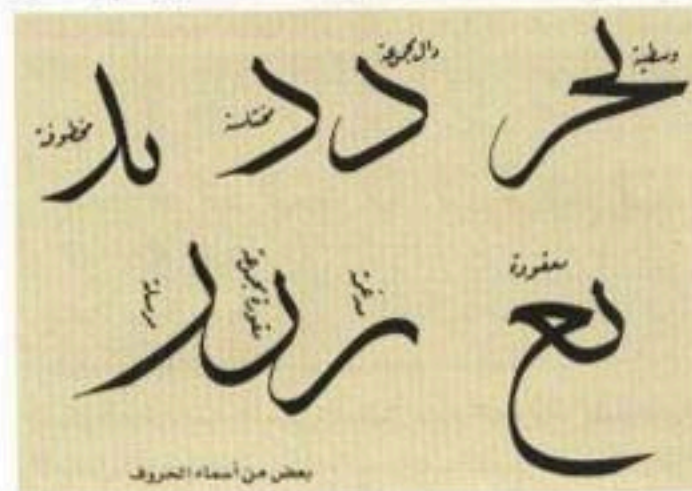 وسطية لحر
دال مجموعة د
مختلسة د
مخطوفة بد
معقودة نع
مدغمة مقورة مجموعة مرسلة
بعض من أسماء الحروف